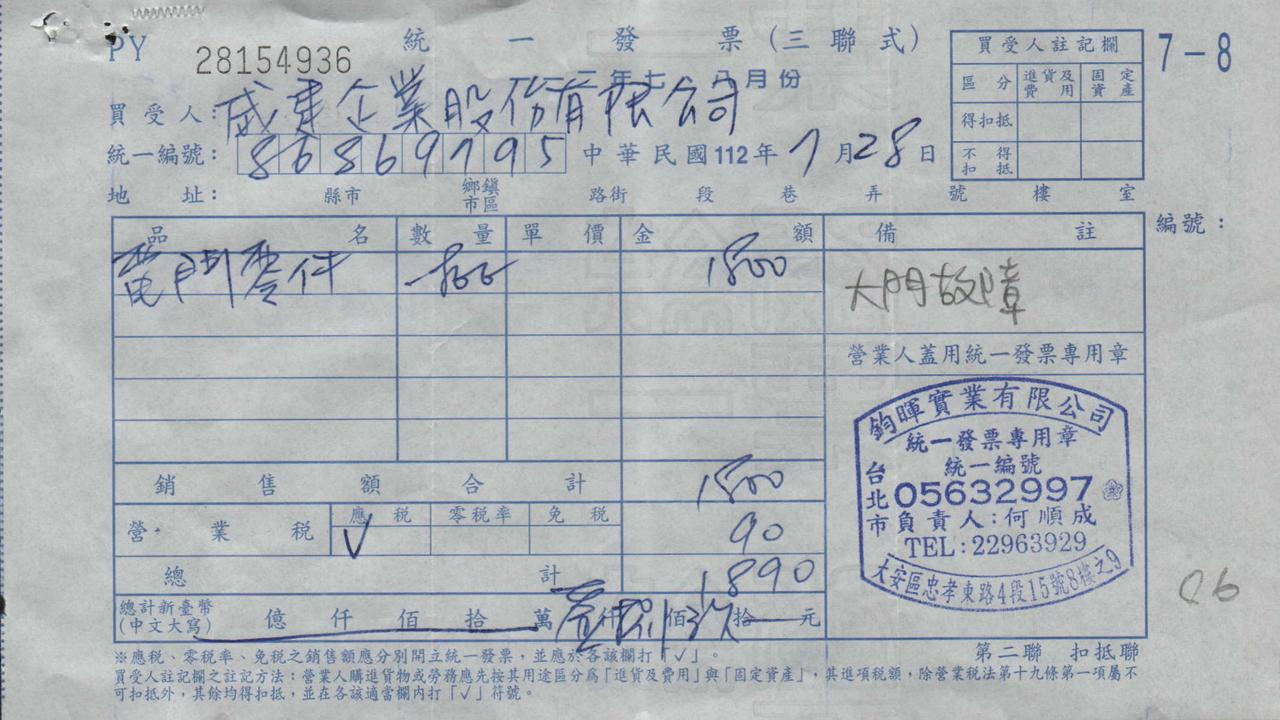 PY 28154936 統一發票(三聯式) 7-8
一二年七、八月份
買受人:威東企業股份有限公司
統一編號:86869795 中華民國112年7月28日
地址: 縣市 鄉鎮市區 路街 段 巷 弄 號 樓 室
買受人註記欄
區分 進貨及費用 固定資產
得扣抵
不得扣抵
編號:
品名 數量 單價 金額 備註
電門零件 一批 1800 大門故障
營業人蓋用統一發票專用章
銷售額合計 1800
營業稅 應稅 零稅率 免稅 90
√
總計 1890
總計新臺幣(中文大寫) 億仟佰拾萬壹仟捌佰玖拾元
鈞暉實業有限公司
統一發票專用章
統一編號
台北市 05632997
負責人:何順成
TEL:22963929
大安區忠孝東路4段15號8樓之9
06
第二聯 扣抵聯
※應稅、零稅率、免稅之銷售額應分別開立統一發票,並應於各該欄打「√」。
買受人註記欄之註記方法:營業人購進貨物或勞務應先按其用途區分為「進貨及費用」與「固定資產」,其進項稅額,除營業稅法第十九條第一項屬不
可扣抵外,其餘均得扣抵,並在各該適當欄內打「√」符號。